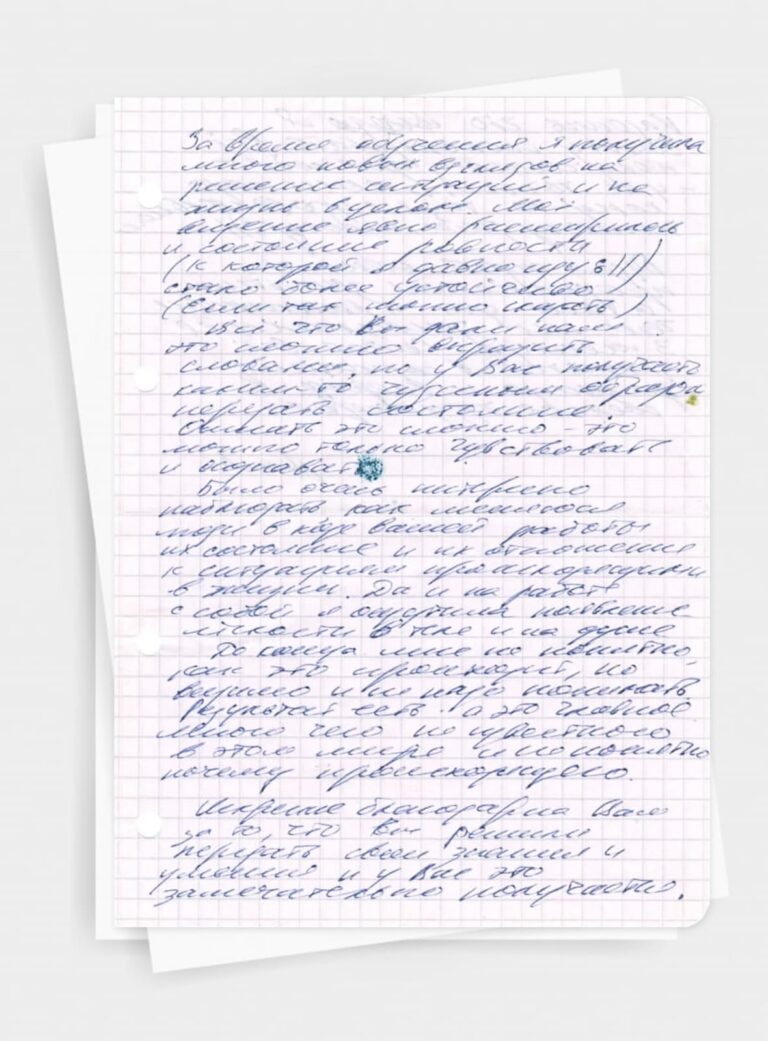 За время обучения я получила
много новых взглядов на
решение ситуаций и на
жизнь в целом. Моё
видение явно расширилось
и состояние ровности
(к которой я давно иду)
стало более устойчиво
(если так можно сказать)
Всё что Вы дали нам
это нельзя выразить
словами, но у Вас получается
каким-то чудесным образом
передать состояние.
это
можно только чувствовать
и осознавать
Было очень интересно
наблюдать как меняются
люди в ходе вашей работы
их состояние и их отношение
к ситуациям происходящим
в жизни. Да и на работе
с собой я ощутила появление
лёгкости в теле и на душе
До конца мне не понятно,
как это происходит, но
видимо и не надо понимать
Результат есть а это главное
много чего не известного
в этом мире и не понятно
почему происходящего.
Искренне благодарна Вам
за то, что Вы решили
передать свои знания и
умения и у Вас это
замечательно получается.